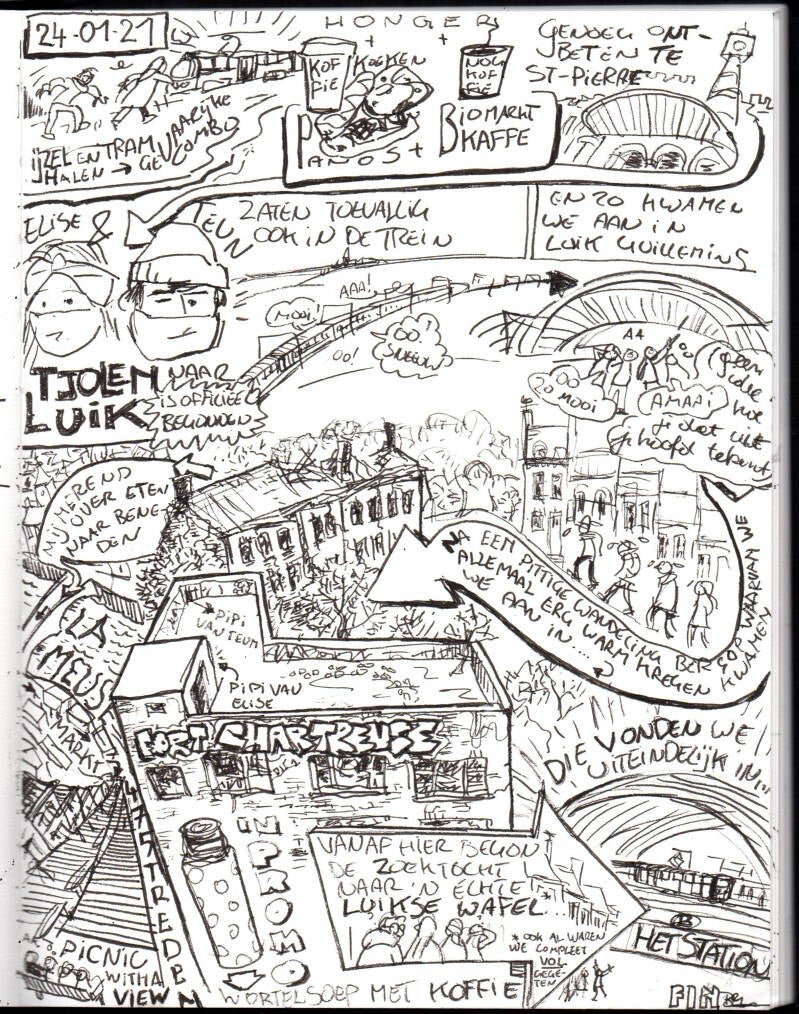 24-01-21
IJZEL EN TRAM
HALEN → GEVAARLIJKE
COMBO
HONGER
+ +
KOF
FIE
KOEKEN
NOG
KOF
FIE
PANOS +
BIOMARKT
KAFFE
GENOEG ONT-
BETEN TE
ST-PIERRE
ELISE &
TEUN
ZATEN TOEVALLIG
OOK IN DE TREIN
EN ZO KWAMEN
WE AAN IN
LUIK GUILLEMINS
TJOLEN NAAR
LUIK
IS OFFICIEEL
BEGONNEN
MOOI!
AAA!
OO!
OO
SNEEUW
A4
OO
ZO MOOI
AMAAI
GEEN
IDEE HOE
JE DAT UIT
JE HOOFD TEKENT
BERGOP WAARVAN WE
ALLEMAAL ERG WARM KREGEN KWAMEN
NA EEN PITTIGE WANDELING
WE AAN IN...
MIJMEREND
OVER ETEN
NAAR BENE-
DEN
LA MEUSE
MARKT
* PIPI
VAN TEUN
* PIPI VAN
ELISE
FORT CHARTREUSE
475 TREDEN
IN PROMO
PICNIC
WITH A
VIEW
WORTELSOEP MET KOFFIE
VANAF HIER BEGON
DE ZOEKTOCHT
NAAR 'N ECHTE
LUIKSE WAFEL*...
* OOK AL WAREN
WE COMPLEET
VOL-
GEGE-
TEN
DIE VONDEN WE
UITEINDELIJK IN...
HET STATION
FIN